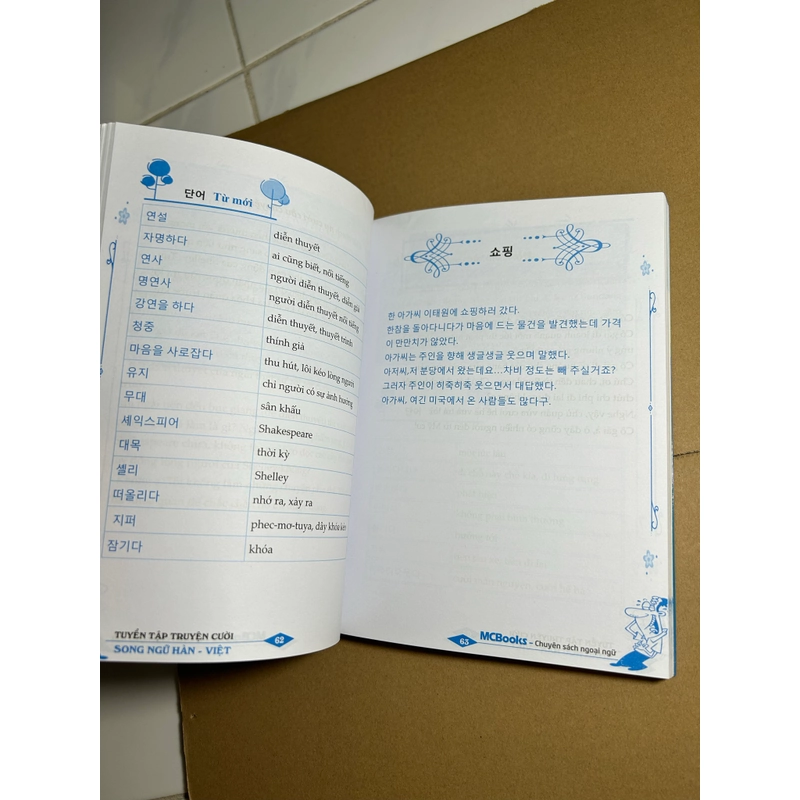 단어 Từ mới
연설 diễn thuyết
자명하다 ai cũng biết, nổi tiếng
연사 người diễn thuyết, diễn giả
명연사 người diễn thuyết nổi tiếng
강연을 하다 diễn thuyết, thuyết trình
청중 thính giả
마음을 사로잡다 thu hút, lôi kéo lòng người
유지 chỉ người có sự ảnh hưởng
무대 sân khấu
셰익스피어 Shakespeare
대목 thời kỳ
셸리 Shelley
떠올리다 nhớ ra, xảy ra
지퍼 phec-mơ-tuya, dây khóa kéo
잠기다 khóa
TUYỂN TẬP TRUYỆN CƯỜI
SONG NGỮ HÀN - VIỆT
62
쇼핑
한 아가씨 이태원에 쇼핑하러 갔다.
한참을 돌아다니다가 마음에 드는 물건을 발견했는데 가격
이 만만치가 않았다.
아가씨는 주인을 향해 생글생글 웃으며 말했다.
아저씨,저 분당에서 왔는데요...차비 정도는 빼 주실거죠?
그러자 주인이 히죽히죽 웃으면서 대답했다.
아가씨, 여긴 미국에서 온 사람들도 많다구.
63 MCBooks – Chuyên sách ngoại ngữ